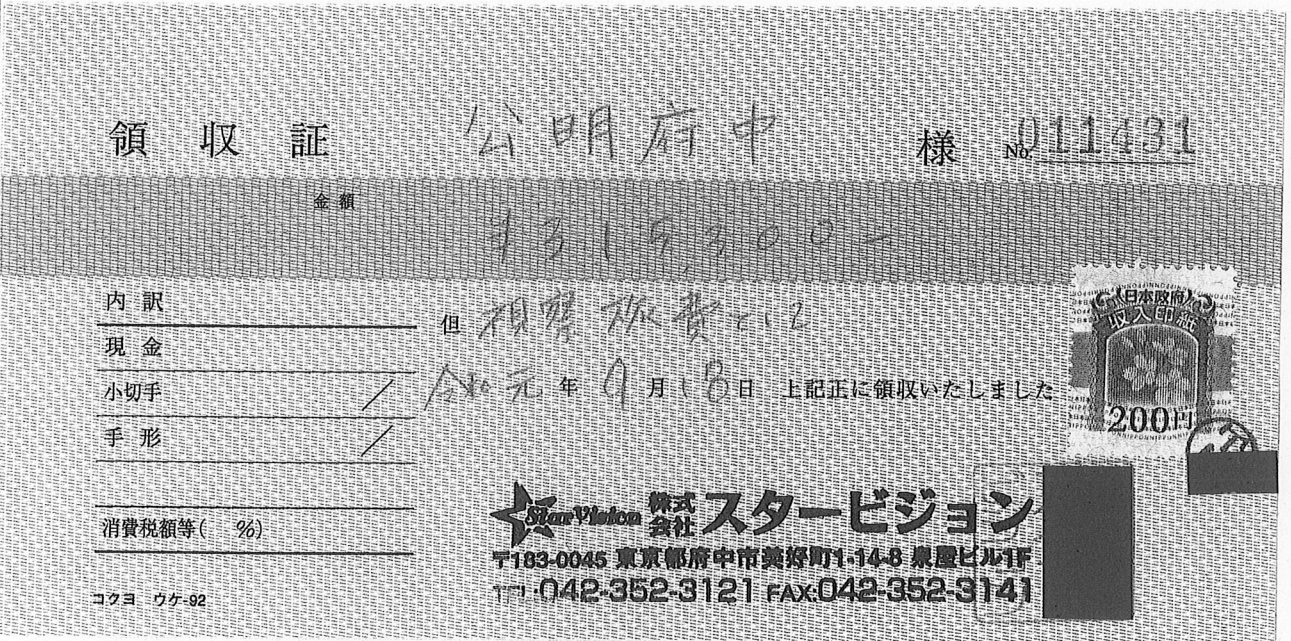 領収証 公明府中 様 No. 011431
金額
¥315,300-
内訳
但 視察旅費として
現金
小切手
令和元年9月18日 上記正に領収いたしました
手形
消費税額等( %)
日本政府
収入印紙
200円
Star Vision 株式会社 スタービジョン
〒183-0045 東京都府中市美好町1-14-8 泉屋ビル1F
TEL:042-352-3121 FAX:042-352-3141
コクヨ ウケ-92